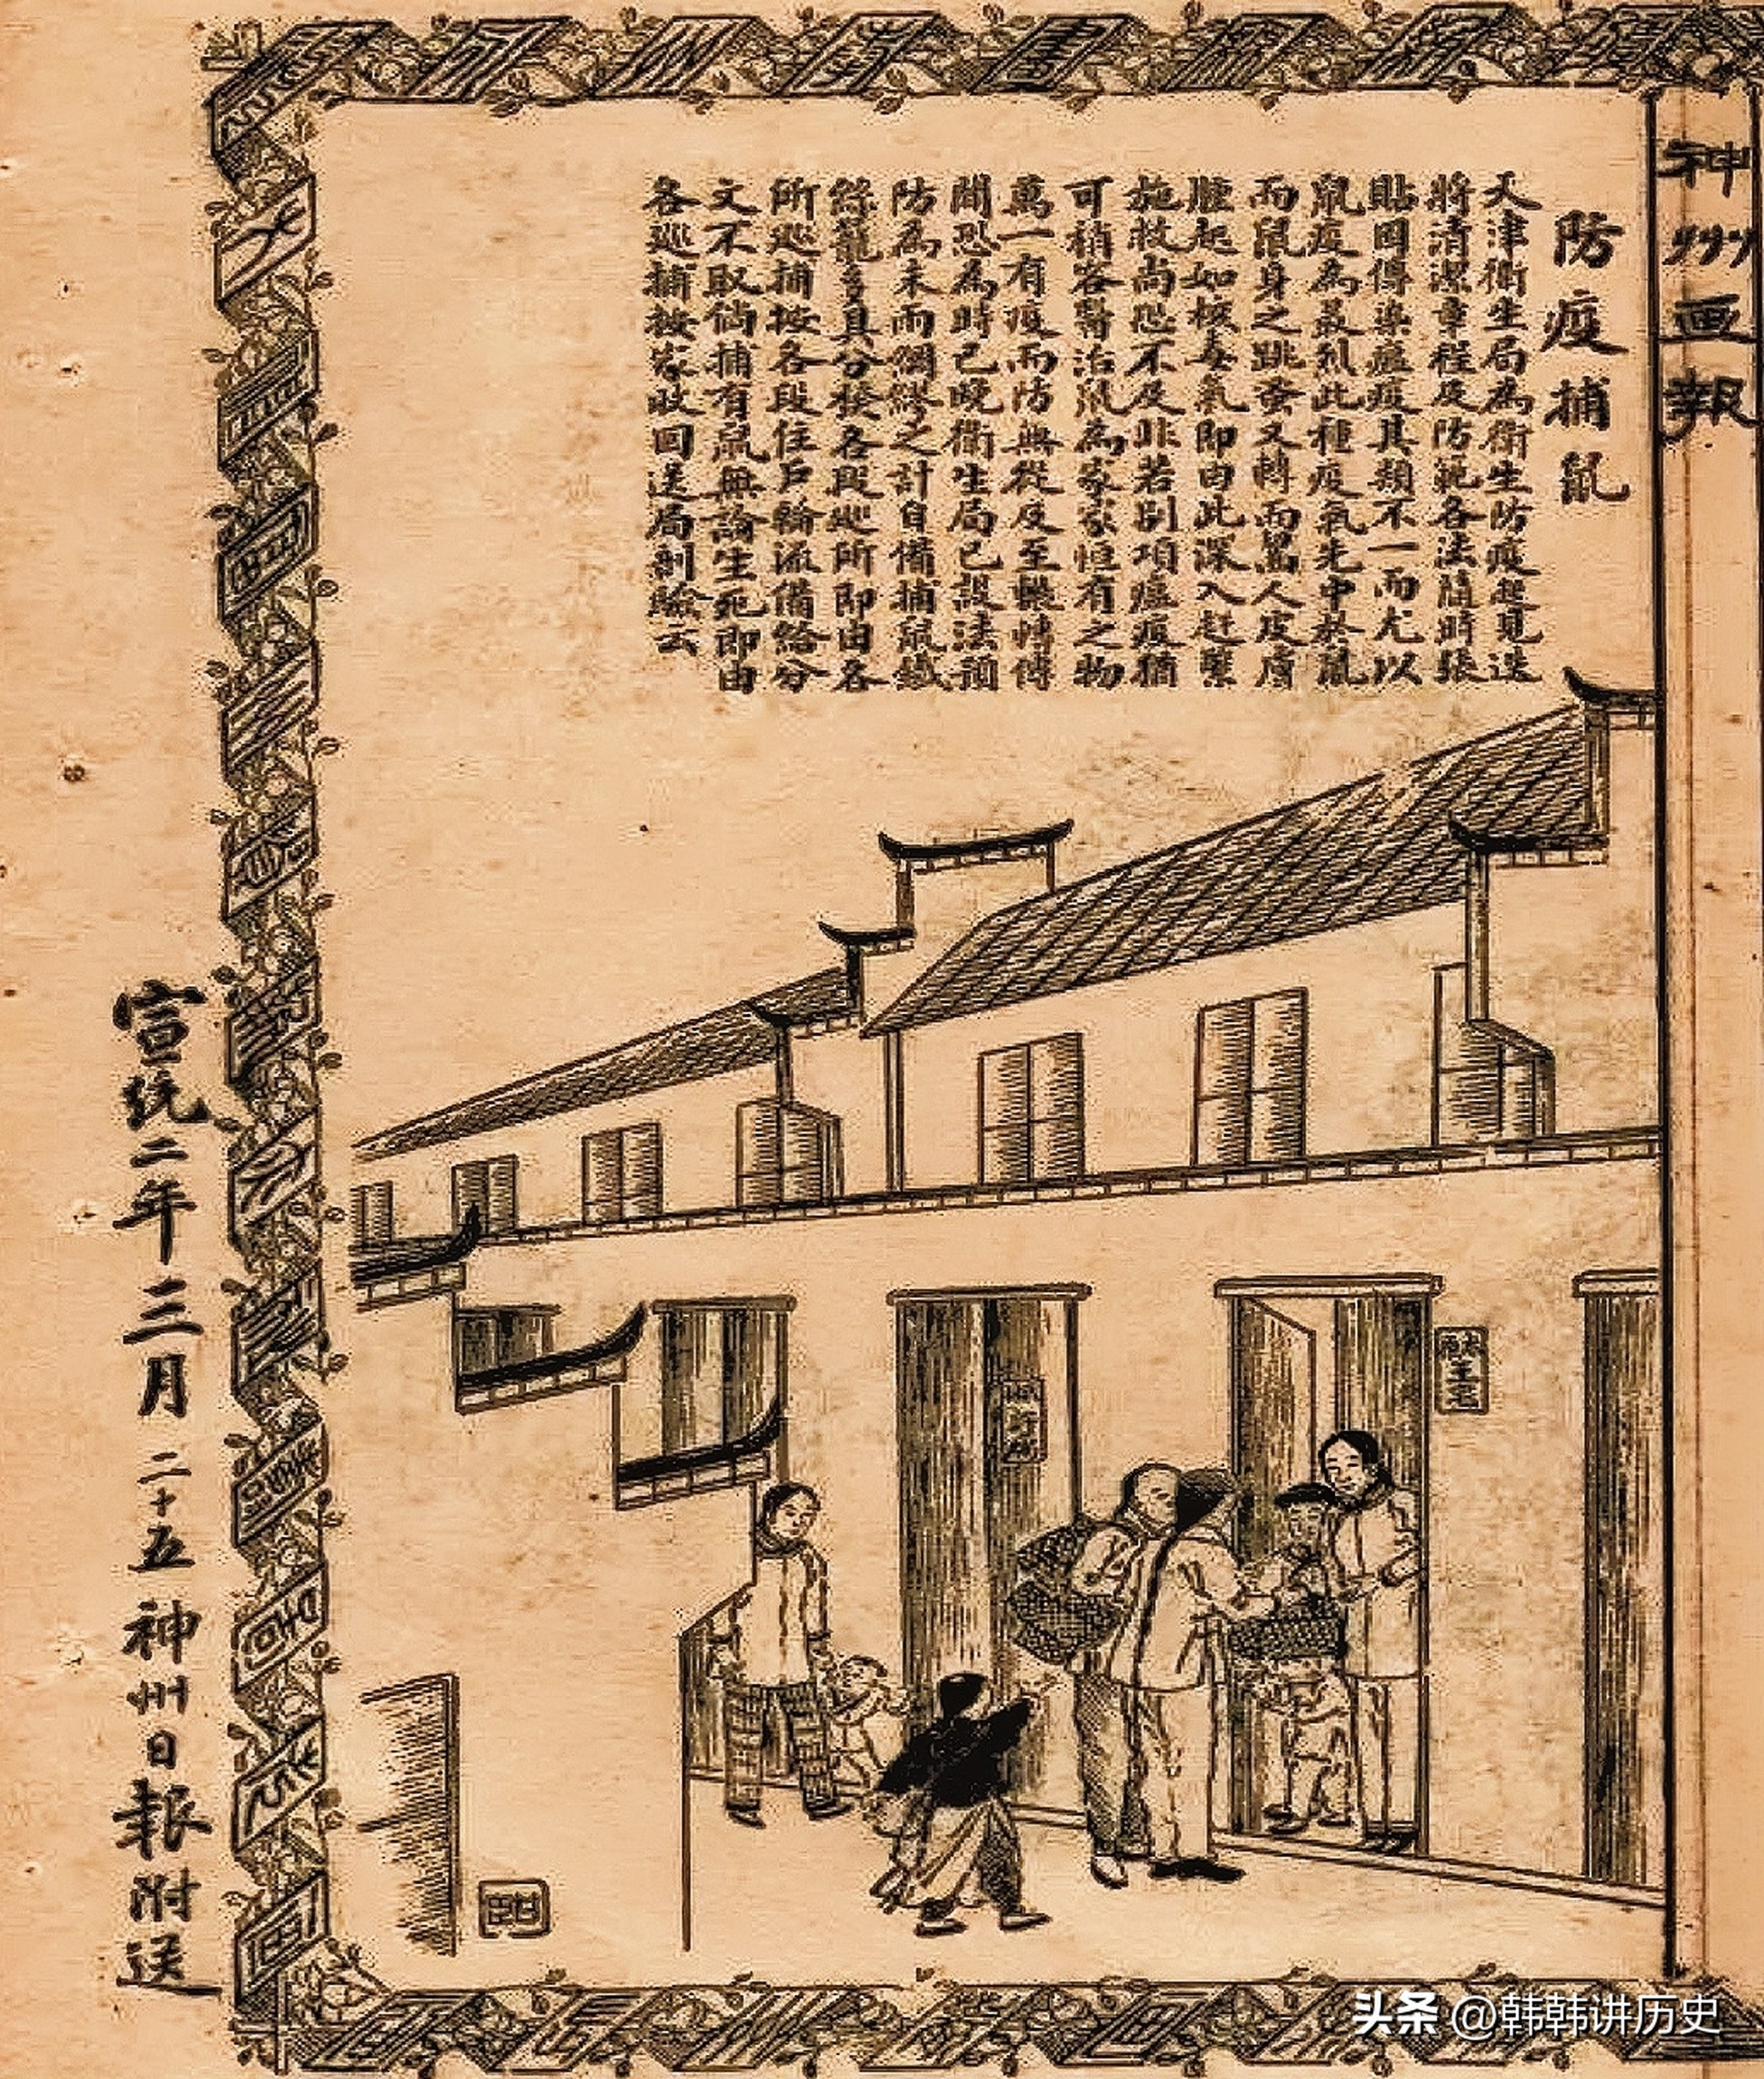 神州画報
防疫捕鼠
天津衛生局為衛生防疫起見迭
將清潔章程及防範各法隨時張
貼因傳染瘟疫其類不一而尤以
鼠疫為最烈此種疫氣先中於鼠
而鼠身之跳蚤又轉而噬人皮膚
腫起如核毒氣即由此深入赶緊
施救尚恐不及非若別項瘟疫猶
可稍容醫治鼠為家家恒有之物
萬一有疫而防無從及至輾轉傳
聞恐為時已晚衛生局已設法預
防為未雨綢繆之計自備捕鼠鐵
絲籠多具分發各段巡所即由各
所巡捕按各段住戶輪流備給分
文不取倘捕有鼠無論生死即由
各巡捕按家收回送局剖驗云
宣統二年三月二十五神州日報附送
头条 @韩韩讲历史